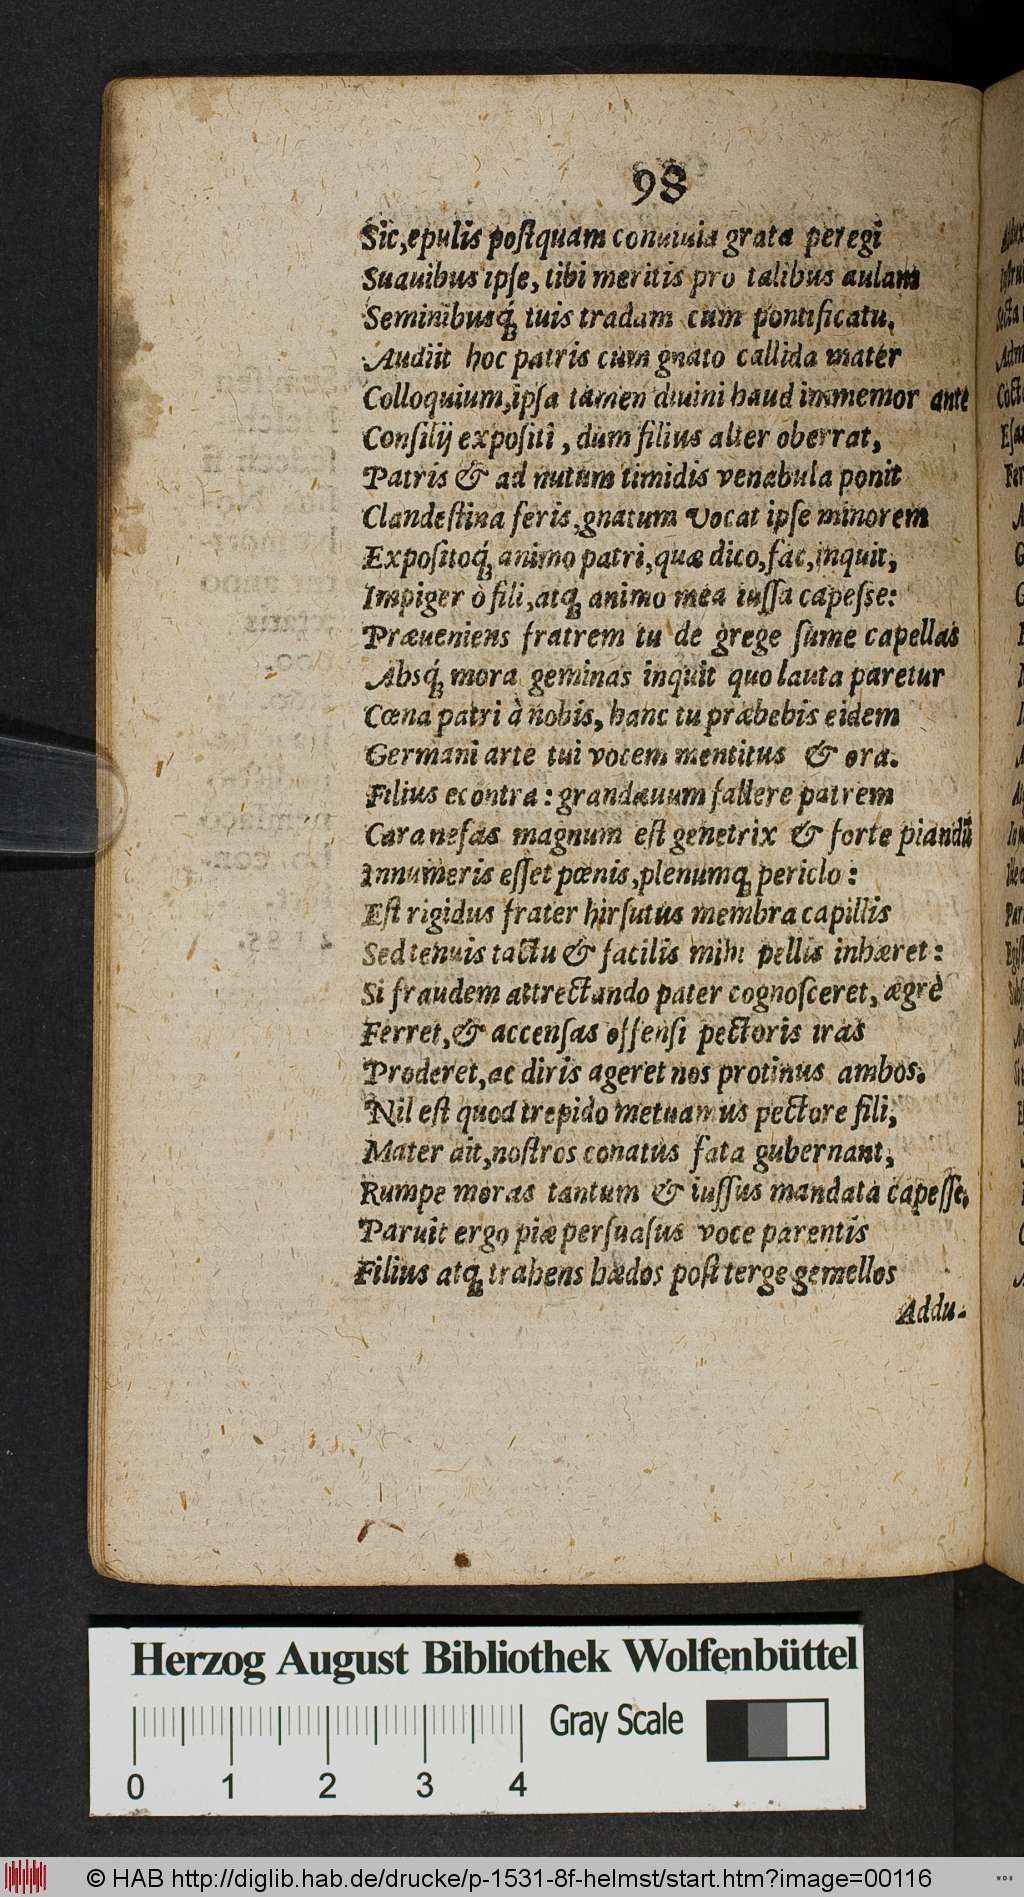 98
Sic, epulis postquam conuiuia grata peregi
Suauibus ipse, tibi meritis pro talibus aulam
Seminibusq́; tuis tradam cum pontificatu.
Audiit hoc patris cum gnato callida mater
Colloquium, ipsa tamen diuini haud immemor ante
Consilij expositi, dum filius alter oberrat,
Patris & ad nutum timidis venabula ponit
Clandestina feris, gnatum vocat ipse minorem
Expositoq́; animo patri, quæ dico, fac, inquit,
Impiger ò fili, atq; animo mea iussa capesse:
Præueniens fratrem tu de grege sume capellas
Absq́; mora geminas inquit quo lauta paretur
Cœna patri à nobis, hanc tu præbebis eidem
Germani arte tui vocem mentitus & ora.
Filius econtra: grandæuum fallere patrem
Cara nefas magnum est genetrix & forte piandū
Innumeris esset pœnis, plenumq; periclo:
Est rigidus frater hirsutus membra capillis
Sed tenuis tactu & facilis mihi pellis inhæret:
Si fraudem attrectando pater cognosceret, ægrè
Ferret, & accensas offensi pectoris iras
Proderet, ac diris ageret nos protinus ambos.
Nil est quod trepido metuamus pectore fili,
Mater ait, nostros conatus fata gubernant,
Rumpe moras tantum & iussus mandata capesse.
Paruit ergo piæ persuasus voce parentis
Filius atq; trahens hædos post terge gemellos
Addu-
Herzog August Bibliothek Wolfenbüttel
Gray Scale
0 1 2 3 4
© HAB http://diglib.hab.de/drucke/p-1531-8f-helmst/start.htm?image=00116